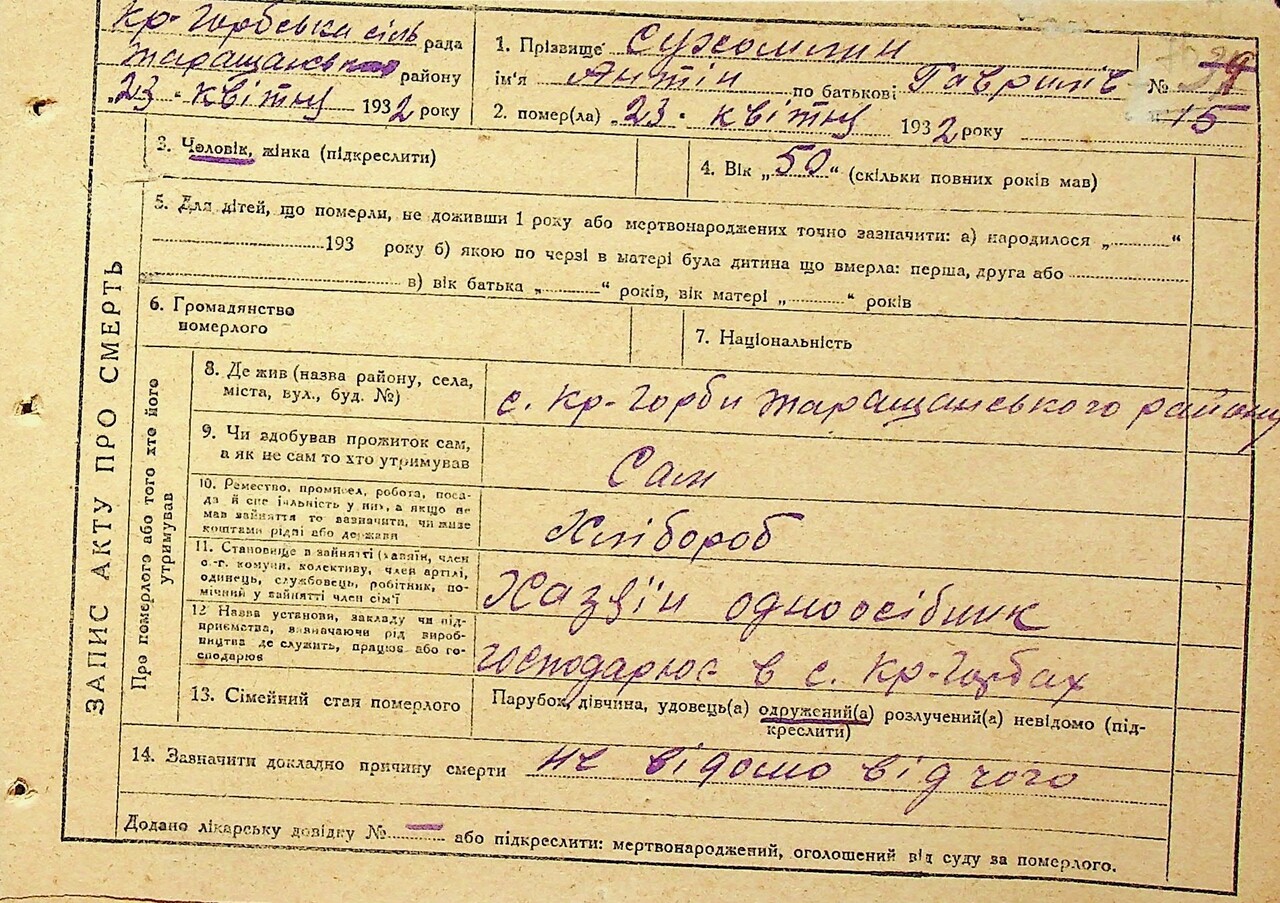 Кр-Горбська сіль рада
Таращанськ району
„23 " квітну 1932 року
1. Прізвище Сухомлин
ім'я Антін по батькові Гаврилів №
15
2. помер(ла) „23 " квітну 1932 року
3. Чоловік, жінка (підкреслити)
4. Вік „50" (скільки повних років мав)
5. Для дітей, що померли, не доживши 1 року або мертвонароджених точно зазначити: а) народилося „..........“
193 року б) якою по черзі в матері була дитина що вмерла: перша, друга або
в) вік батька „..........“ років, вік матері „..........“ років
6. Громадянство
померлого
7. Національність
ЗАПИС АКТУ ПРО СМЕРТЬ
Про померлого або того хто його
утримував
8. Де жив (назва району, села,
міста, вул., буд. №)
с. Кр-Горби Таращанського району
9. Чи здобував прожиток сам,
а як не сам то хто утримував
Сам
10. Ремество, промисел, робота, поса-
да й спеціяльність у них, а якщо не
мав зайняття то зазначити, чи живе
коштами рідні або держави
Хлібороб
11. Становище в зайнятті (хазяїн, член
с.-г. комуни, колективу, член артілі,
одинець, службовець, робітник, по-
мічний у зайнятті член сім'ї
Хазяїн одноосібник
12 Назва установи, закладу чи під-
приємства, зазначаючи рід вироб-
ництва де служить, працює або го-
сподарює
господарює в с. Кр-Горбах
13. Сімейний стан померлого
Парубок, дівчина, удовець(а) одружений(а) розлучений(а) невідомо (під-
креслити)
14. Зазначити докладно причину смерти не відомо від чого
Додано лікарську довідку № — або підкреслити: мертвонароджений, оголошений від суду за померлого.